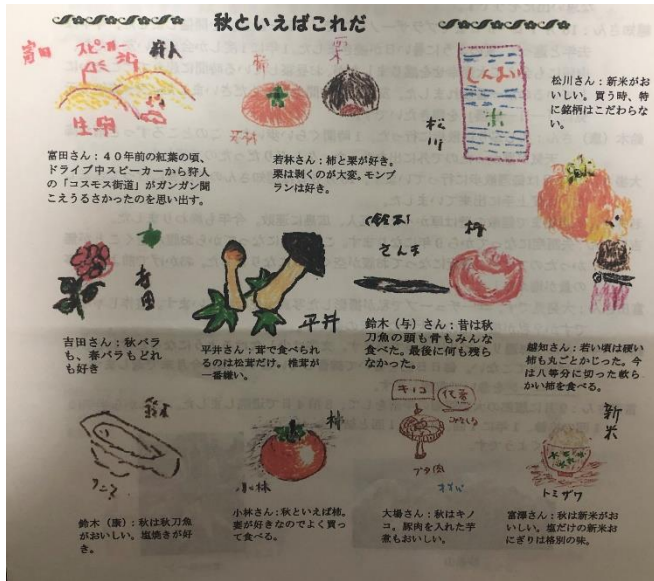 秋といえばこれだ
富田
スピーカー
狩人
生駒
柿
栗
若林
松川
しんまい
米
富田さん：４０年前の紅葉の頃、
ドライブ中スピーカーから狩人
の「コスモス街道」がガンガン聞
こえうるさかったのを思い出す。
若林さん：柿と栗が好き。
栗は剥くのが大変。モンブ
ランは好き。
松川さん：新米がお
いしい。買う時、特
に銘柄はこだわらな
い。
吉田
平井
さんま
柿
吉田さん：秋バラ
も、春バラもどれ
も好き
平井さん：茸で食べられ
るのは松茸だけ。椎茸が
一番嫌い。
鈴木（与）さん：昔は秋
刀魚の頭も骨もみんな
食べた。最後に何も残ら
なかった。
越知さん：若い頃は硬い
柿も丸ごとかじった。今
は八等分に切った軟ら
かい柿を食べる。
鈴木
柿
小林
キノコ
ブタ肉
新米
トミザワ
鈴木（康）：秋は秋刀魚
がおいしい。塩焼きが好
き。
小林さん：秋といえば柿。
妻が好きなのでよく買っ
て食べる。
大場さん：秋はキノ
コ。豚肉を入れた芋
煮もおいしい。
富澤さん：秋は新米がお
いしい。塩だけの新米お
にぎりは格別の味。